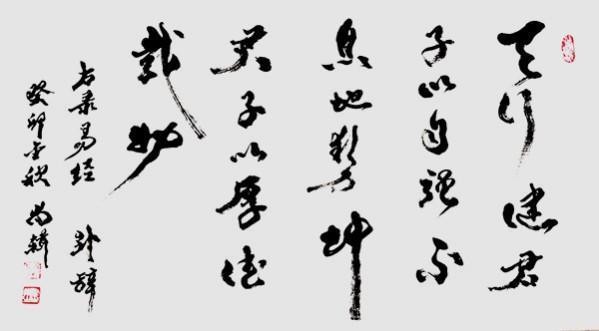 天行健君
子以自强不
息地势坤
君子以厚德
载物
右录易经 卦辞
癸卯金秋 尚